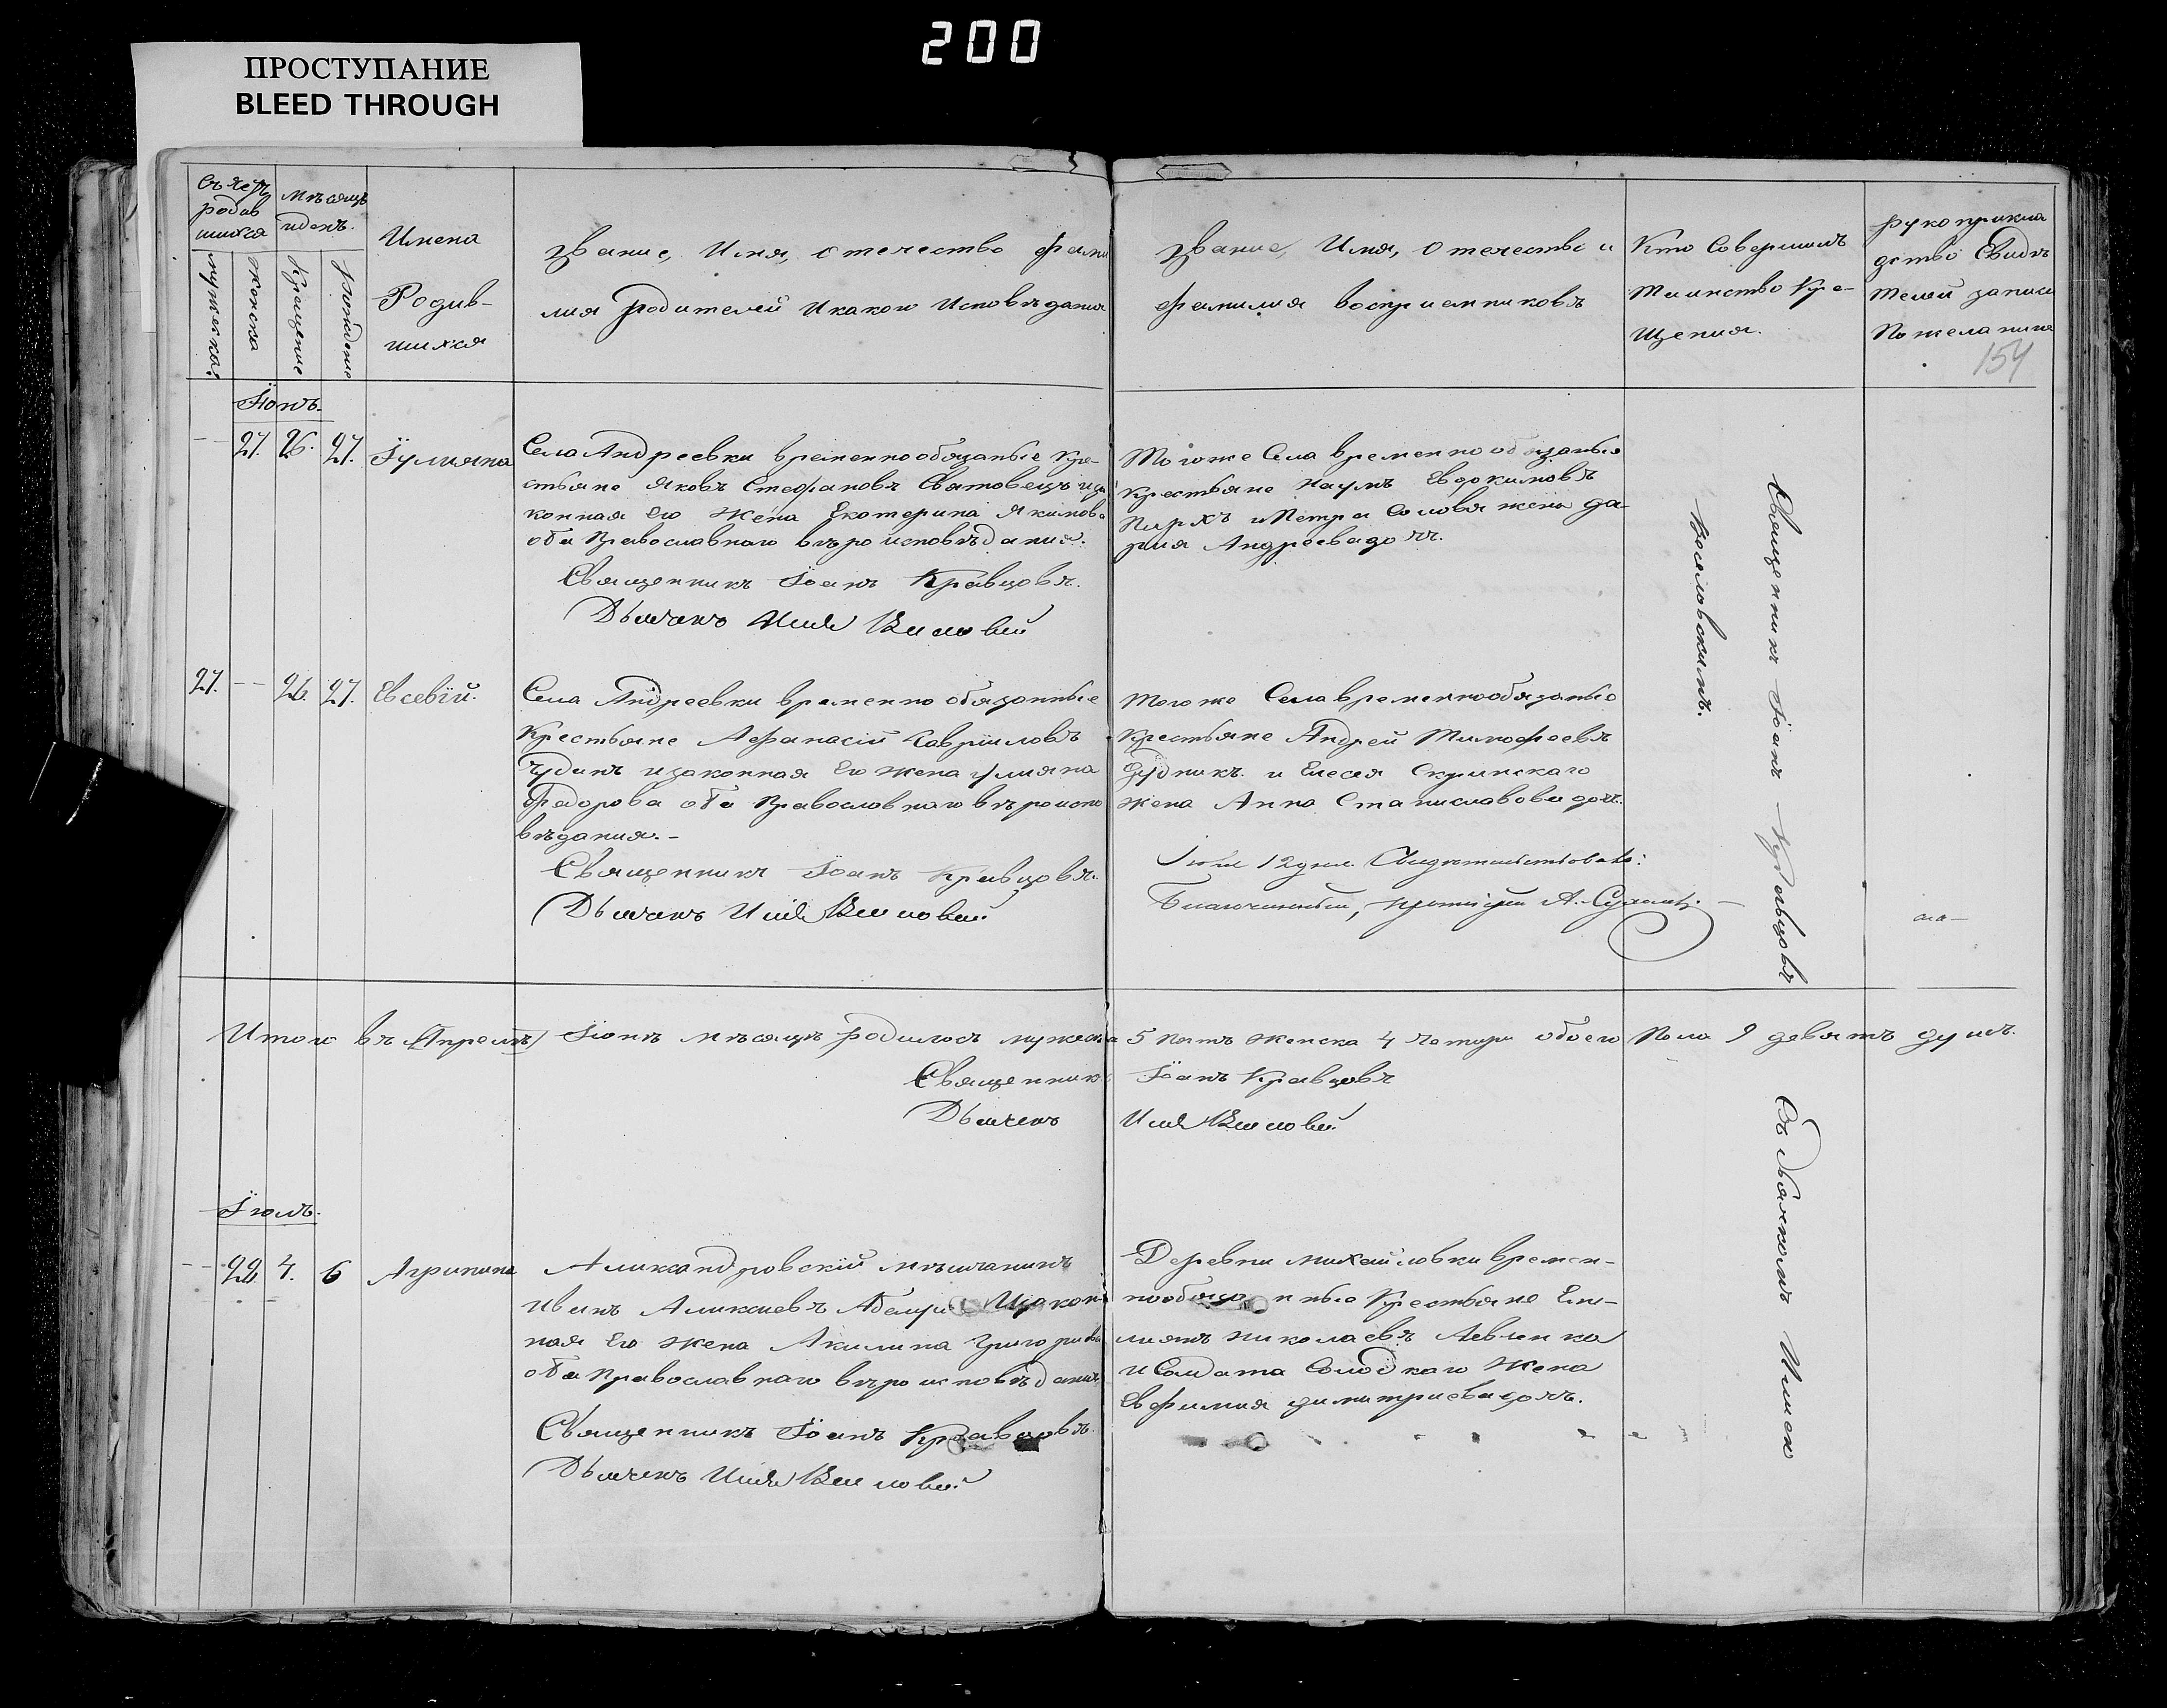 200
ПРОСТУПАНИЕ
BLEED THROUGH
родив
шихся
мѣсяцъ
и день.
мужеска
женска
Крещение
рождение
Имена
Родив-
шихся
Звание, Имя, отечество фами
лия родителей и какого исповѣдания
Звание, Имя, отечество и
фамилия восприемниковъ
Кто совершилъ
таинство Кре-
щения.
рукоприкла
дство Свидѣ
телей записи
по желанию
154
Іюнь.
-- 27. 26. 27. Іулияна
Села Андреевки временнообязаные Кре-
стьяне Яковъ Стефановъ Святовецъ и за
конная его жена Екатерина Якимова
оба Православнаго вѣроисповѣдания.
Священникъ Іоанъ Кравцовъ.
Дьячекъ Илия
Тогоже Села временно обязаные
Крестьяне Наумъ Евдокимовъ
Пирхъ и Петра Соловья жена Да
рия Андреева дочь.
27. -- 26. 27. Евсевій.
Села Андреевки временно обязанные
Крестьяне Афанасій Гавріиловъ
Чудикъ и законная Его жена Улияна
Федорова оба Православнаго вѣроиспо
вѣдания.-
Священникъ Іоанъ Кравцовъ.
Дьячекъ Илия
Того же Села временнообязаные
Крестьяне Андрей Тимофеевъ
Дудникъ. и Елесея Скринскаго
жена Анна Станиславова дочь.
12 дня Свидетельствовалъ:
Благочинный, протоіерей А.
Священникъ Іоанъ Кравцовъ
Итого въ (Апрелѣ) Іюнѣ мѣсяцѣ родилось мужеска 5 пять женска 4 четыри обоего пола 9 девять душъ.
Священникъ Іоанъ Кравцовъ
Дьячекъ Илия
Съ дьячкомъ Илиею
Іюль.
-- 22 4. 6 Агрипина
Александровскій мѣщанинъ
Иванъ Аликсиевъ и закон
ная Его жена Акилина Григориева
оба Православнаго вѣроисповѣдания
Священникъ Іоанъ Кравцовъ.
Дьячекъ Илия
Деревни Михайловки времен-
нообязанные Крестьяне Еми-
лиянъ Николаевъ Левченко
и Солдата Солодкаго жена
Евфимия Димитриева дочь.